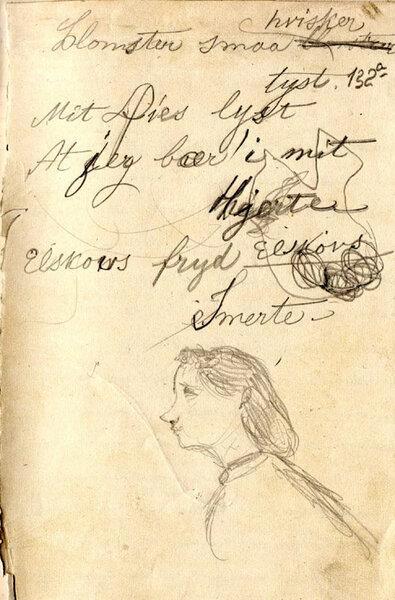 hvisker
Blomster smaa
tyst. 132a
Mit Øies lyst
At jeg bær i mit
Hjerte
Elskovs fryd Elskovs
Smerte